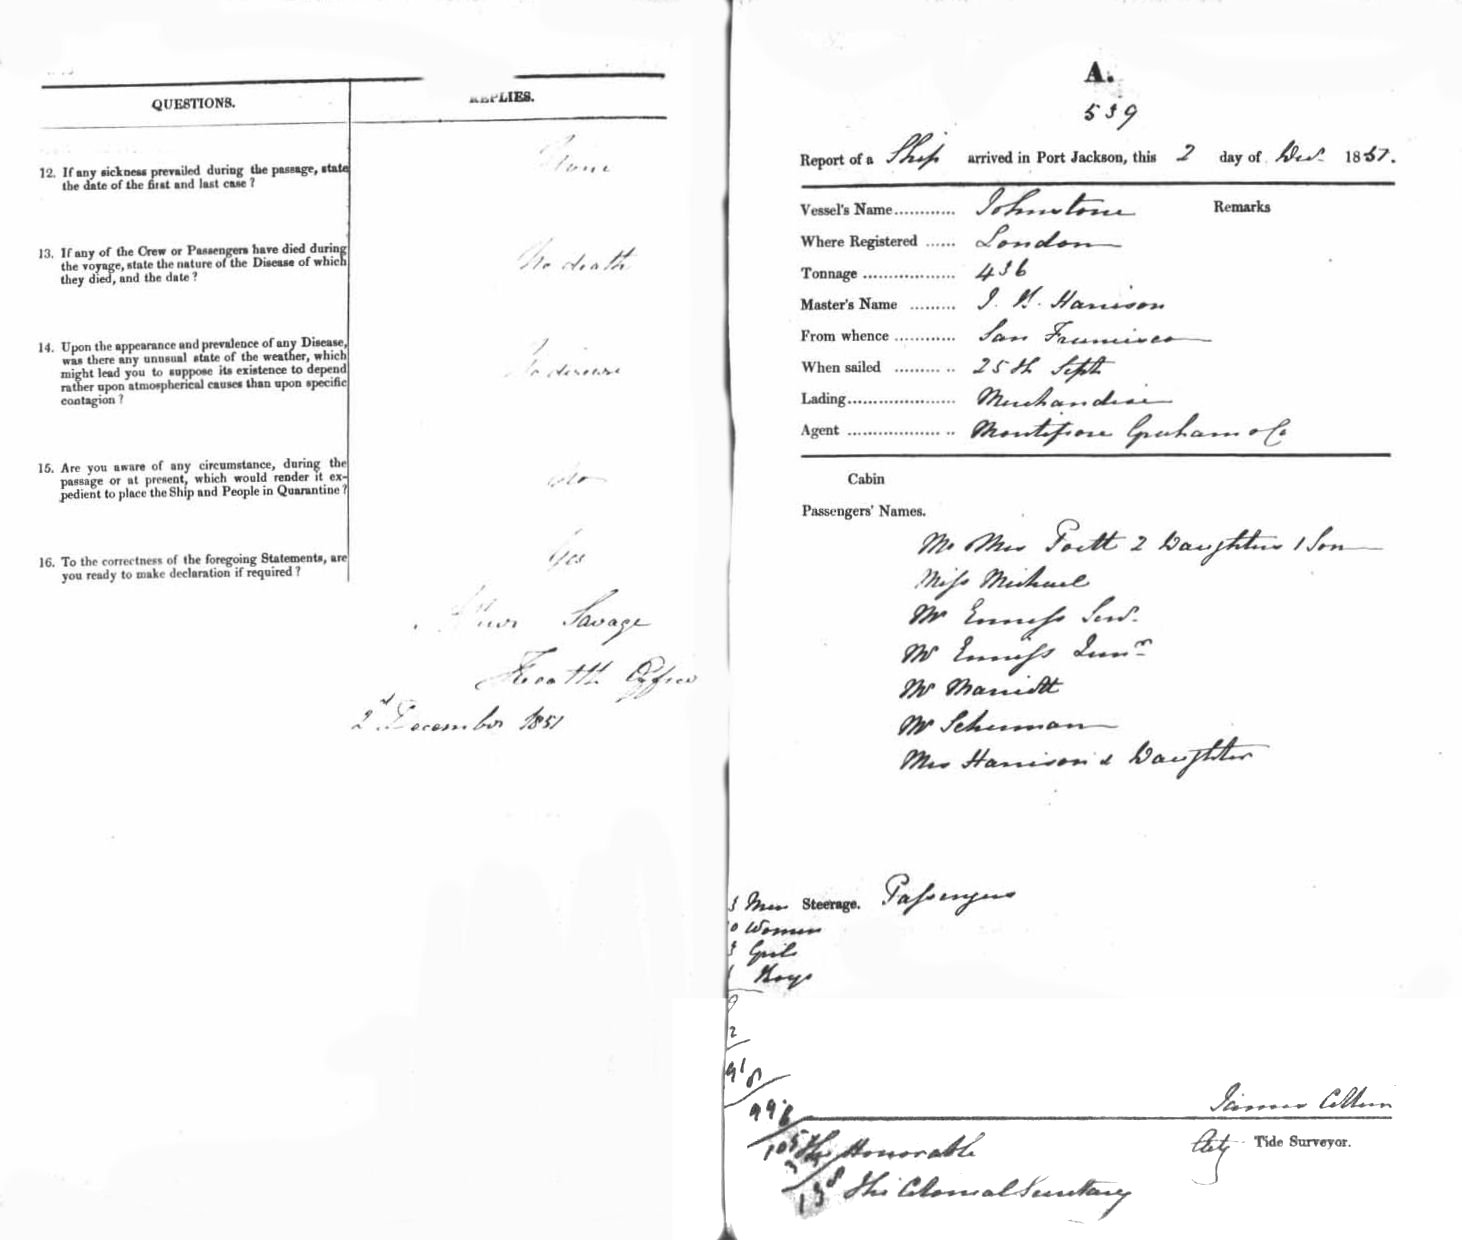 QUESTIONS.
REPLIES.
12. If any sickness prevailed during the passage, state
the date of the first and last case ?
None
13. If any of the Crew or Passengers have died during
the voyage, state the nature of the Disease of which
they died, and the date ?
No death
14. Upon the appearance and prevalence of any Disease,
was there any unusual state of the weather, which
might lead you to suppose its existence to depend
rather upon atmospherical causes than upon specific
contagion ?
No disease
15. Are you aware of any circumstance, during the
passage or at present, which would render it ex-
pedient to place the Ship and People in Quarantine ?
No
16. To the correctness of the foregoing Statements, are
you ready to make declaration if required ?
Yes
Savage
Health Officer
2d December 1851
A.
539
Report of a Ship arrived in Port Jackson, this 2 day of Decr 1851.
Vessel's Name............ Johnstone
Remarks
Where Registered ...... London
Tonnage .................. 436
Master's Name ......... J. H. Harrison
From whence ............ San Francisco
When sailed ......... .. 25th Sept
Lading..................... Merchandise
Agent .................. .. Montefiore Graham & Co
Cabin
Passengers' Names.
Mr Mrs Poett 2 Daughters 1 Son
Miss Michael
Mr Enniss Senr.
Mr Enniss Junr
Mr Marriott
Mr Scheuman
Mrs Harrison & Daughter
3 Men Steerage. Passengers
0 Women
3 Girls
1 Boys
9
2
91
8
996
105
3
138
James
Actg Tide Surveyor.
The Honorable
The Colonial Secretary